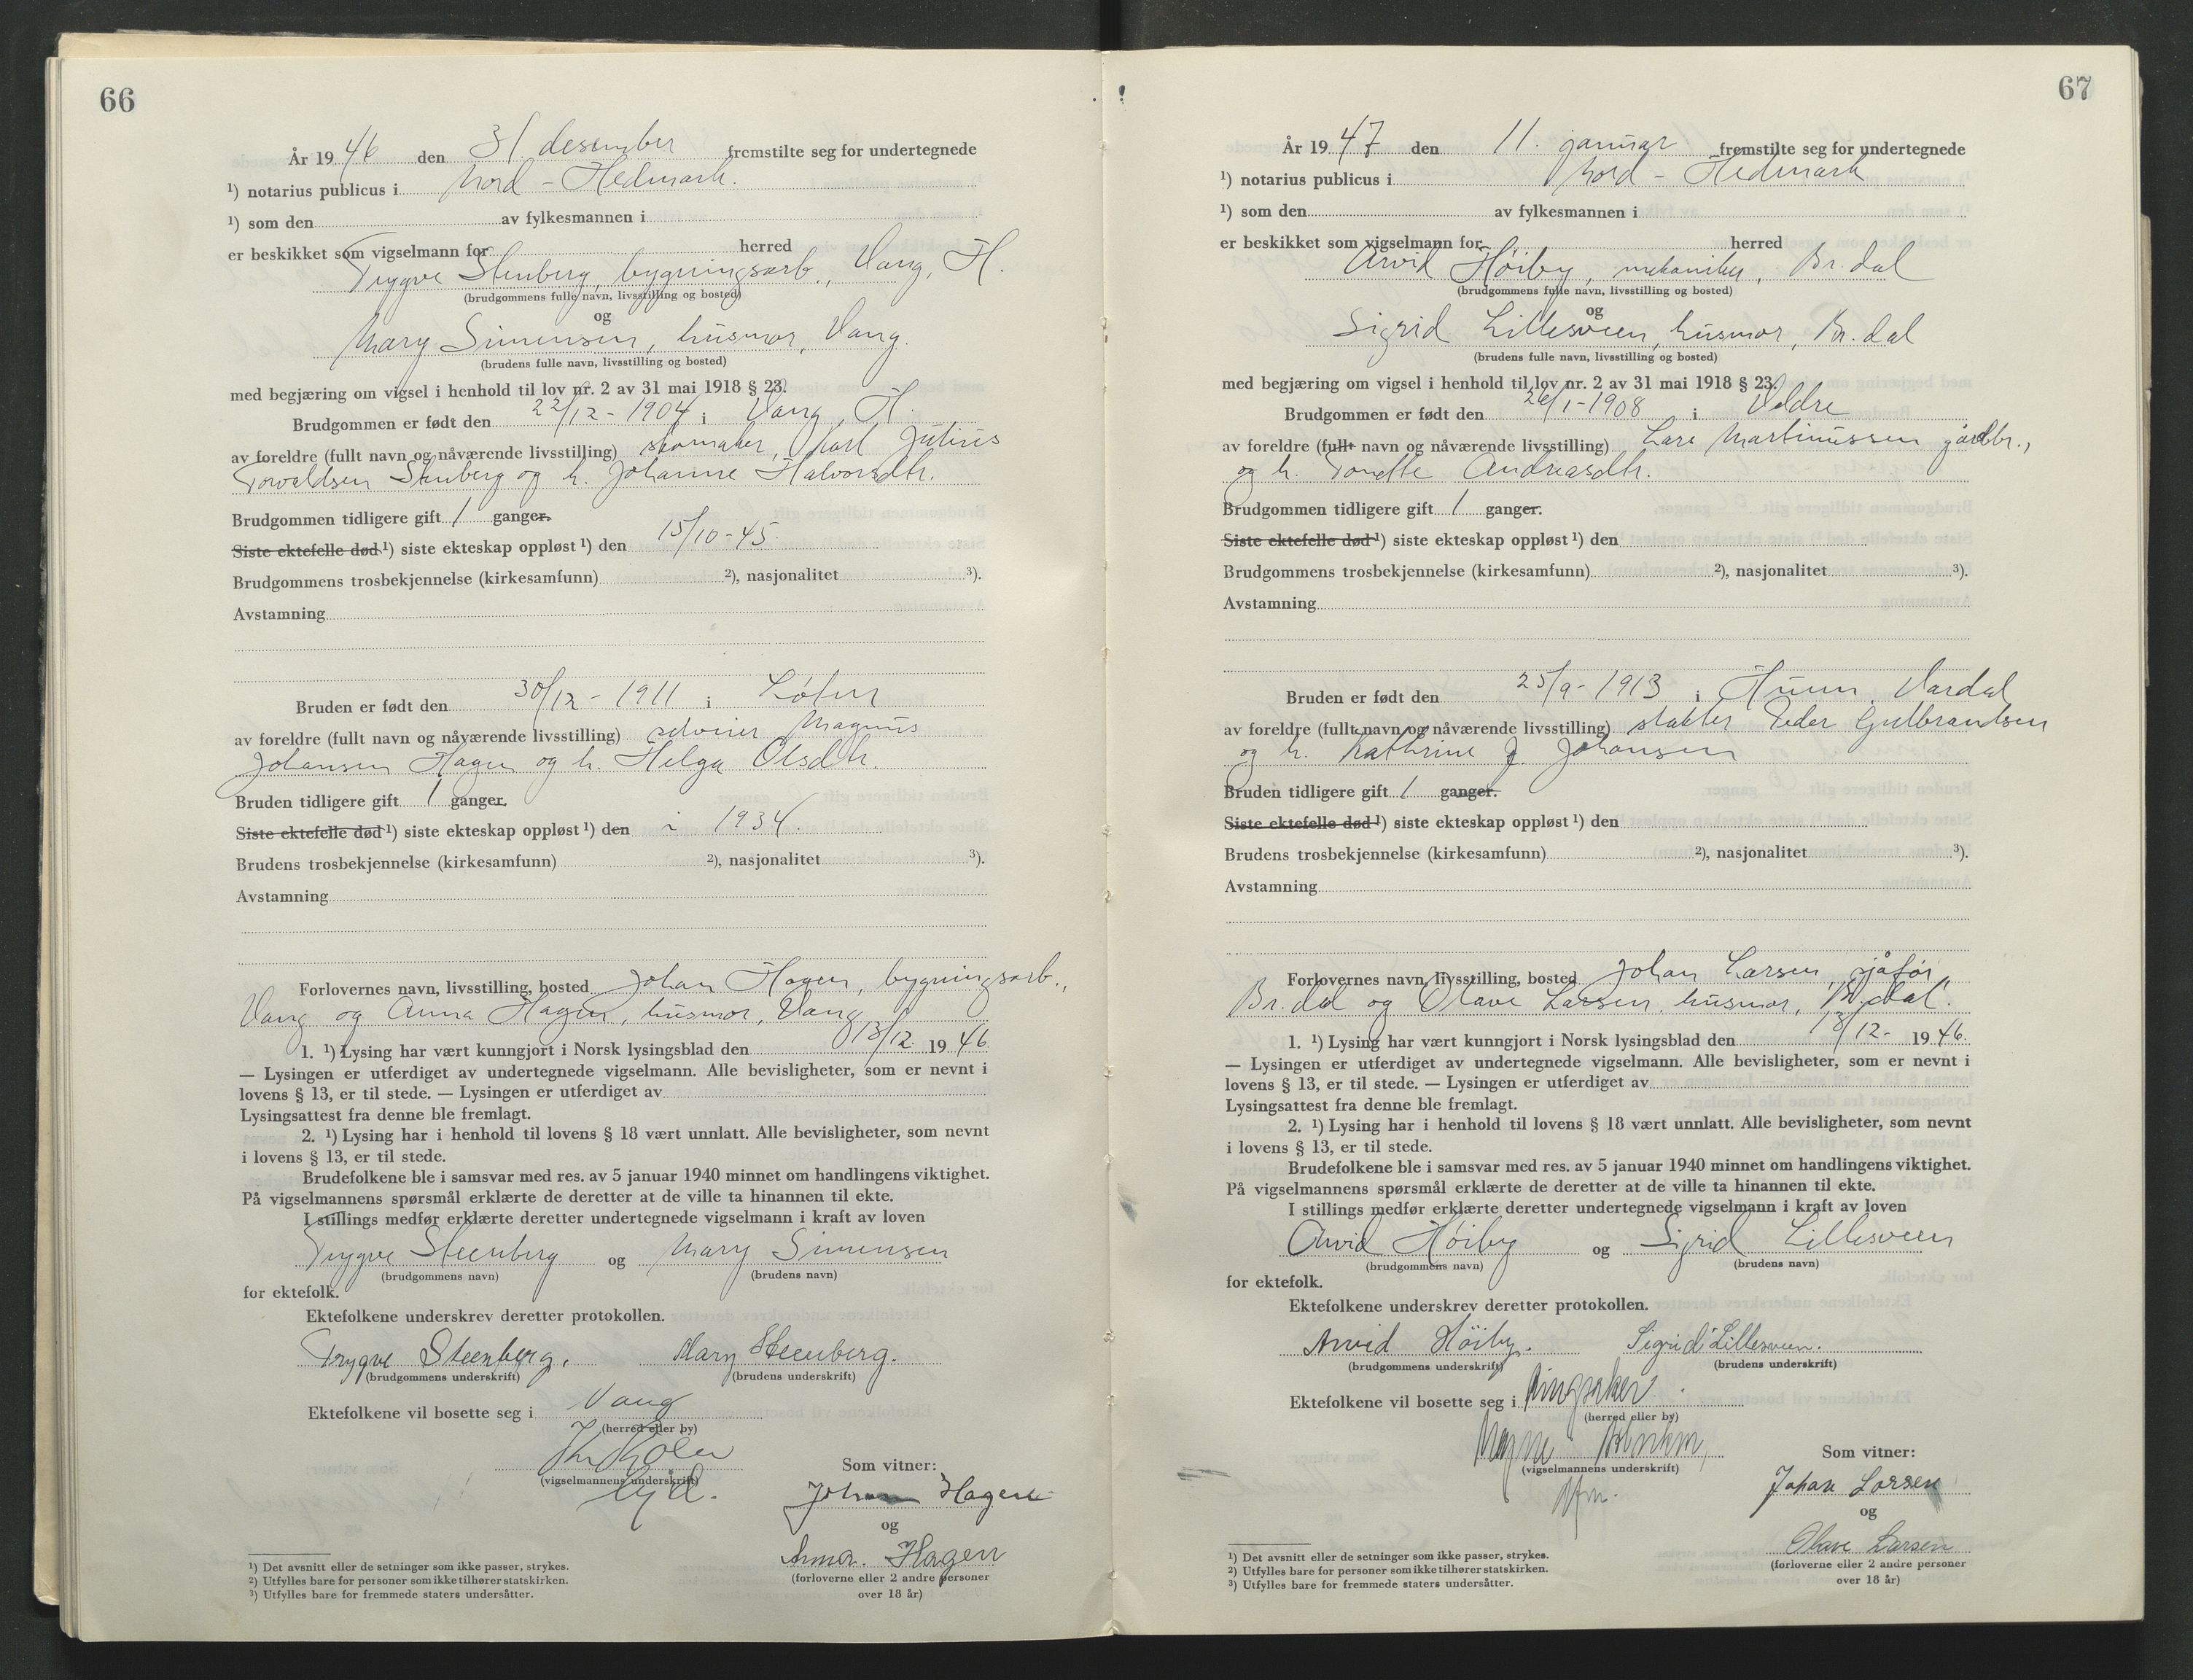 66
År 19 46 den 31 desember fremstilte seg for undertegnede
¹) notarius publicus i Nord-Hedmark.
¹) som den av fylkesmannen i
er beskikket som vigselmann for herred
Trygve Stenberg, bygningsarb., Vang, H.
(brudgommens fulle navn, livsstilling og bosted)
og
Mary Simensen, husmor, Vang.
(brudens fulle navn, livsstilling og bosted)
med begjæring om vigsel i henhold til lov nr. 2 av 31 mai 1918 § 23.
Brudgommen er født den 22/12-1904 i Vang, H.
av foreldre (fullt navn og nåværende livsstilling) skomaker, Karl Julius
Torvaldsen Stenberg og h. Johanne Halvorsdtr.
Brudgommen tidligere gift 1 ganger.
Siste ektefelle død ¹) siste ekteskap oppløst ¹) den 15/10-45.
Brudgommens trosbekjennelse (kirkesamfunn) ²), nasjonalitet ³).
Avstamning
Bruden er født den 30/12-1911 i Løten
av foreldre (fullt navn og nåværende livsstilling) Magnus
Johansen Hagen og h. Helga Olsdtr.
Bruden tidligere gift 1 ganger.
Siste ektefelle død ¹) siste ekteskap oppløst ¹) den i 1934.
Brudens trosbekjennelse (kirkesamfunn) ²), nasjonalitet ³).
Avstamning
Forlovernes navn, livsstilling, bosted Johan Hagen, bygningsarb.,
Vang og Anna Hagen, husmor, Vang
1. ¹) Lysing har vært kunngjort i Norsk lysingsblad den 13/12 19 46.
— Lysingen er utferdiget av undertegnede vigselmann. Alle bevisligheter, som er nevnt i
lovens § 13, er til stede. — Lysingen er utferdiget av
Lysingsattest fra denne ble fremlagt.
2. ¹) Lysing har i henhold til lovens § 18 vært unnlatt. Alle bevisligheter, som nevnt
i lovens § 13, er til stede.
Brudefolkene ble i samsvar med res. av 5 januar 1940 minnet om handlingens viktighet.
På vigselmannens spørsmål erklærte de deretter at de ville ta hinannen til ekte.
I stillings medfør erklærte deretter undertegnede vigselmann i kraft av loven
Trygve Steenberg og Mary Simensen
(brudgommens navn) (brudens navn)
for ektefolk.
Ektefolkene underskrev deretter protokollen.
Trygve Steenberg. Mary Steenberg.
(brudgommens underskrift) (brudens underskrift)
Ektefolkene vil bosette seg i Vang
(herred eller by)
(vigselmannens underskrift)
Som vitner:
Johan Hagen
og
Anna Hagen
(forloverne eller 2 andre personer
over 18 år)
¹) Det avsnitt eller de setninger som ikke passer, strykes.
²) Utfylles bare for personer som ikke tilhører statskirken.
³) Utfylles bare for fremmede staters undersåtter.
67
År 19 47 den 11. januar fremstilte seg for undertegnede
¹) notarius publicus i Nord-Hedmark
¹) som den av fylkesmannen i
er beskikket som vigselmann for herred
Arvid Høiby, mekaniker, Br.dal
(brudgommens fulle navn, livsstilling og bosted)
og
Sigrid Lillesveen, husmor, Br.dal
(brudens fulle navn, livsstilling og bosted)
med begjæring om vigsel i henhold til lov nr. 2 av 31 mai 1918 § 23.
Brudgommen er født den 26/1-1908 i Veldre
av foreldre (fullt navn og nåværende livsstilling) Lars Martinussen gårdbr.,
og h. Tondte Andreasdtr.
Brudgommen tidligere gift 1 ganger.
Siste ektefelle død ¹) siste ekteskap oppløst ¹) den
Brudgommens trosbekjennelse (kirkesamfunn) ²), nasjonalitet ³).
Avstamning
Bruden er født den 25/9-1913 i Hunn, Vardal
av foreldre (fullt navn og nåværende livsstilling) Peder Gulbrandsen
og h. Kathrine J. Johansen
Bruden tidligere gift 1 ganger.
Siste ektefelle død ¹) siste ekteskap oppløst ¹) den
Brudens trosbekjennelse (kirkesamfunn) ²), nasjonalitet ³).
Avstamning
Forlovernes navn, livsstilling, bosted Johan Larsen, sjåfør,
Br.dal og Olave Larsen, husmor, Br.dal.
1. ¹) Lysing har vært kunngjort i Norsk lysingsblad den 13/12- 19 46.
— Lysingen er utferdiget av undertegnede vigselmann. Alle bevisligheter, som er nevnt i
lovens § 13, er til stede. — Lysingen er utferdiget av
Lysingsattest fra denne ble fremlagt.
2. ¹) Lysing har i henhold til lovens § 18 vært unnlatt. Alle bevisligheter, som nevnt
i lovens § 13, er til stede.
Brudefolkene ble i samsvar med res. av 5 januar 1940 minnet om handlingens viktighet.
På vigselmannens spørsmål erklærte de deretter at de ville ta hinannen til ekte.
I stillings medfør erklærte deretter undertegnede vigselmann i kraft av loven
Arvid Høiby og Sigrid Lillesveen
(brudgommens navn) (brudens navn)
for ektefolk.
Ektefolkene underskrev deretter protokollen.
Arvid Høiby. Sigrid Lillesveen.
(brudgommens underskrift) (brudens underskrift)
Ektefolkene vil bosette seg i Ringsaker.
(herred eller by)
(vigselmannens underskrift)
Som vitner:
Johan Larsen
og
Olave Larsen
(forloverne eller 2 andre personer
over 18 år)
¹) Det avsnitt eller de setninger som ikke passer, strykes.
²) Utfylles bare for personer som ikke tilhører statskirken.
³) Utfylles bare for fremmede staters undersåtter.